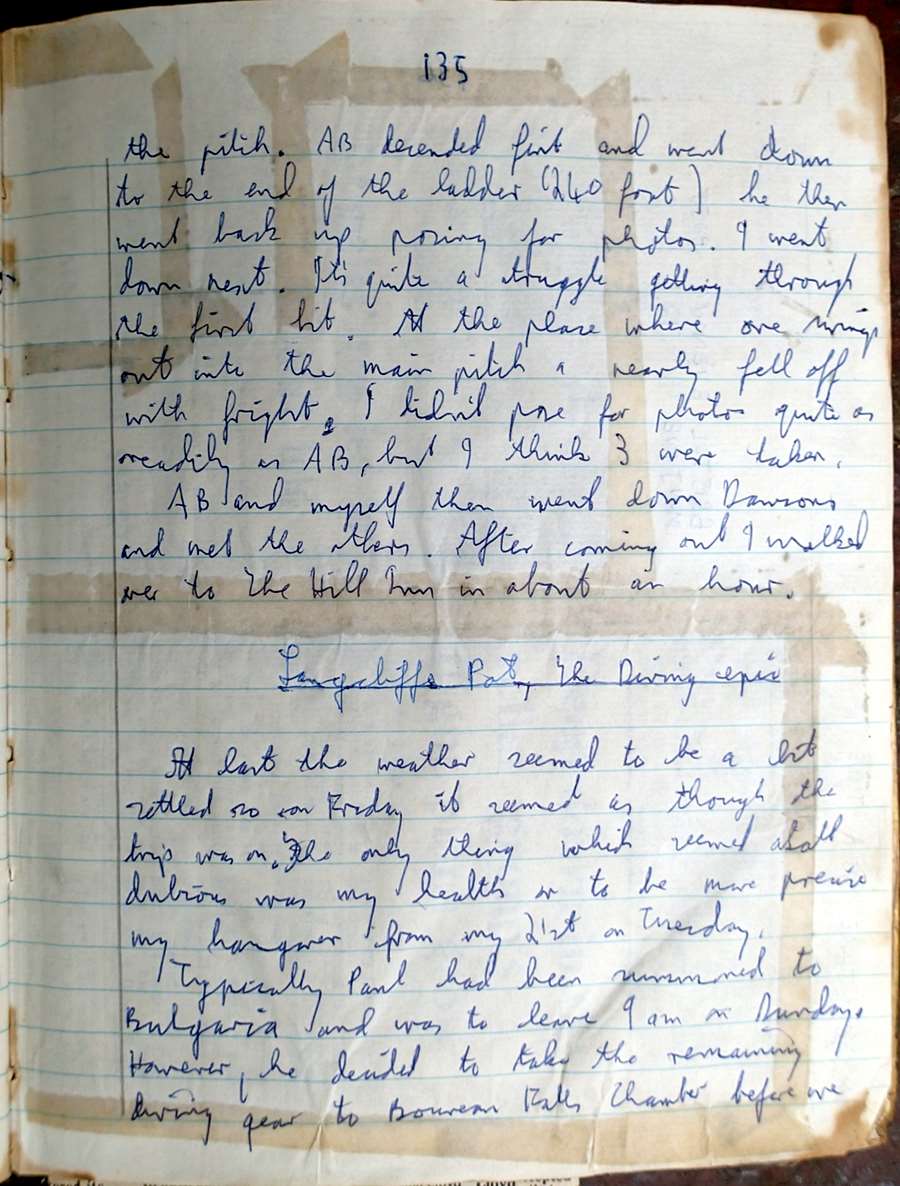 135
the pitch. AB decended first and went down
to the end of the ladder (240 foot) he then
went back up posing for photos. I went
down next. It's quite a struggle getting through
the first bit. At the place where one swings
out into the main pitch a nearly fell off
with fright. I didn't pose for photos quite as
readily as AB, but I think 3 were taken.
AB and myself then went down Dawsons
and met the others. After coming out I walked
over to The Hill Inn in about an hour.
Langcliffe Pot, The Diving epic
At last the weather seemed to be a bit
settled so on Friday it seemed as though the
trip was on. The only thing which seemed atall
dubious was my health or to be more precise
my hangover from my 21st on Tuesday.
Typically Paul had been summoned to
Bulgaria and was to leave 9 am on Sunday.
However, he decided to take the remaining
diving gear to Boureau Falls Chamber before we